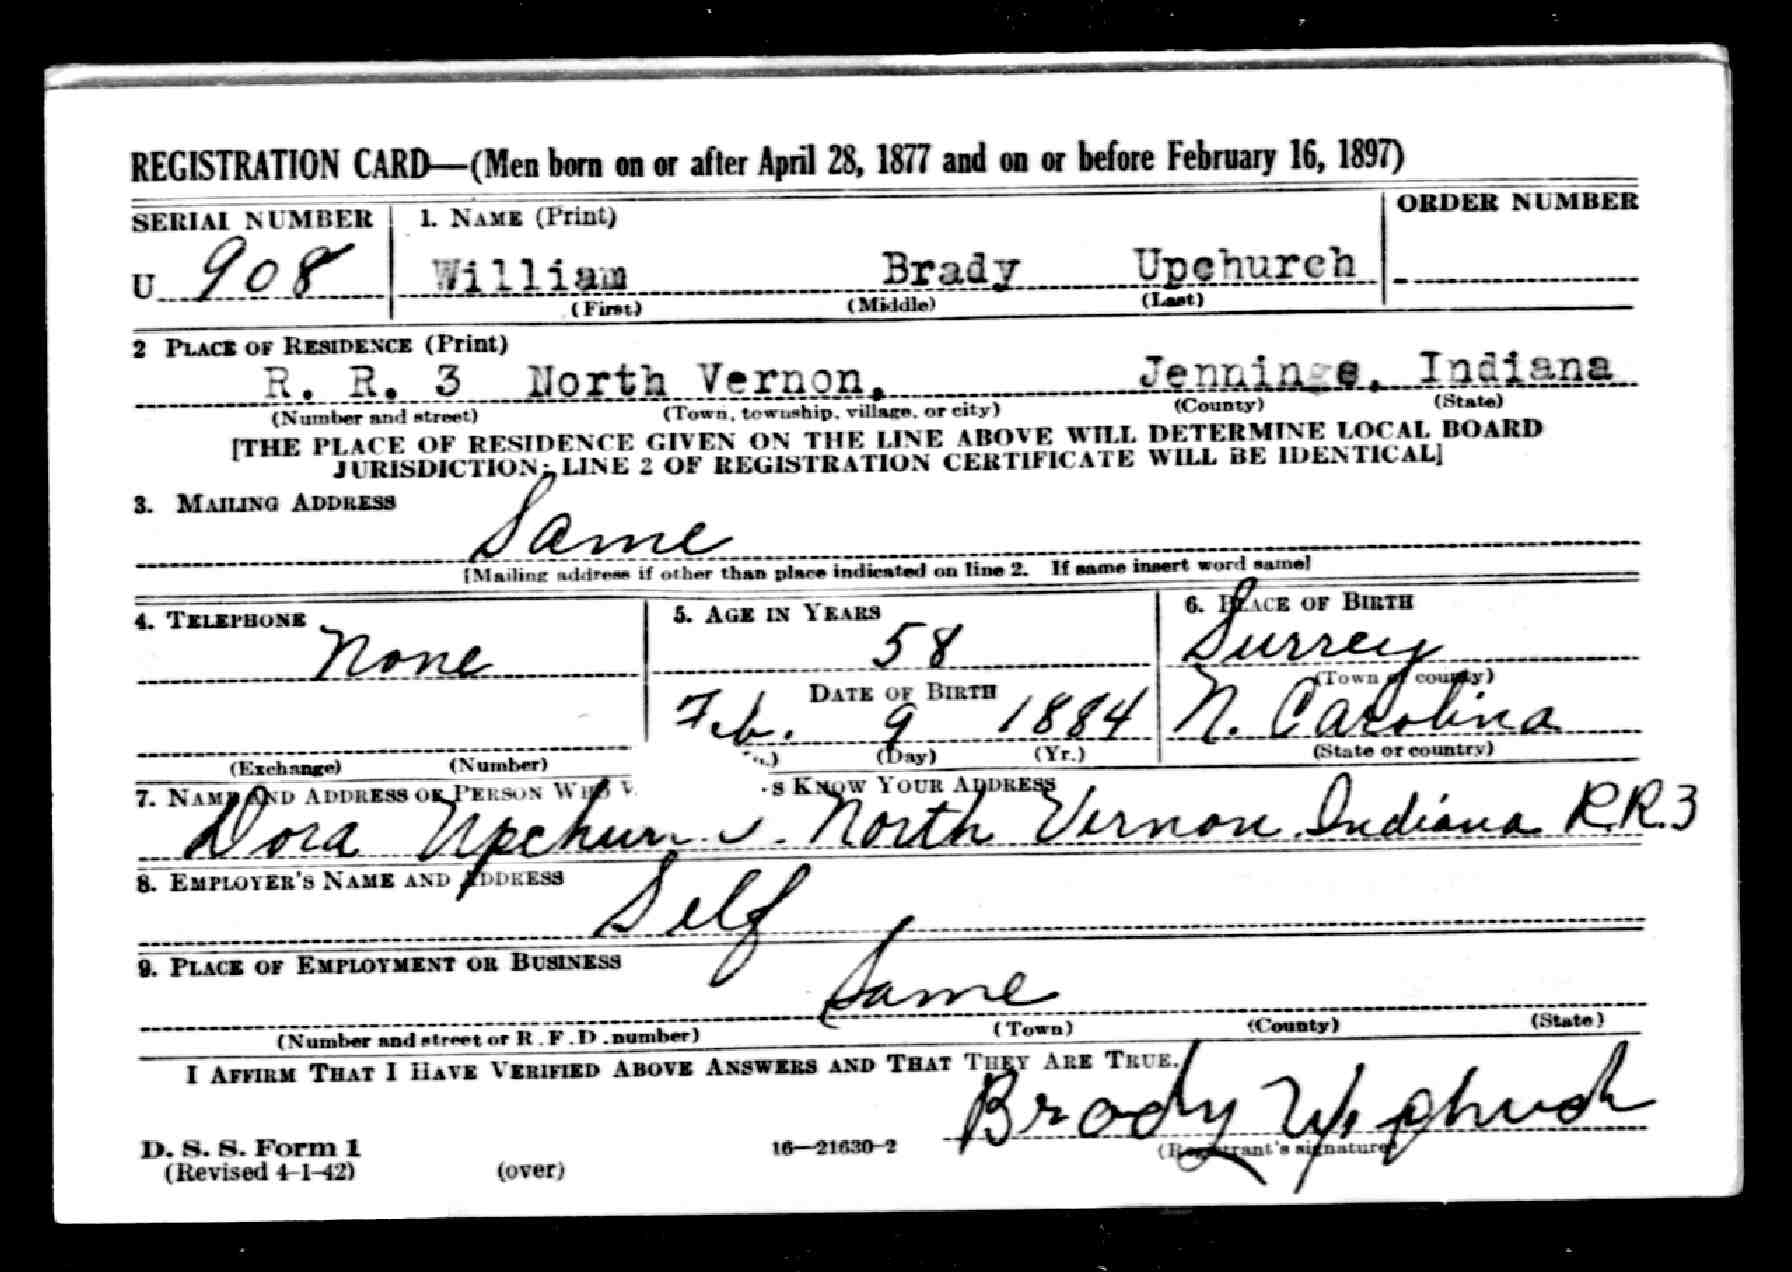 REGISTRATION CARD—(Men born on or after April 28, 1877 and on or before February 16, 1897)
SERIAL NUMBER 1. NAME (Print) ORDER NUMBER
U 908 William Brady Upchurch
(First) (Middle) (Last)
2 PLACE OF RESIDENCE (Print)
R. R. 3 North Vernon, Jennings, Indiana
(Number and street) (Town, township, village, or city) (County) (State)
[THE PLACE OF RESIDENCE GIVEN ON THE LINE ABOVE WILL DETERMINE LOCAL BOARD
JURISDICTION; LINE 2 OF REGISTRATION CERTIFICATE WILL BE IDENTICAL]
3. MAILING ADDRESS
Same
[Mailing address if other than place indicated on line 2. If same insert word same]
4. TELEPHONE 5. AGE IN YEARS 6. PLACE OF BIRTH
None 58 Surrey
DATE OF BIRTH (Town or county)
Feb. 9 1884 N. Carolina
(Exchange) (Number) (Day) (Yr.) (State or country)
7. NAME AND ADDRESS OF PERSON WHO KNOW YOUR ADDRESS
Dora North Vernon Indiana R.R.3
8. EMPLOYER'S NAME AND ADDRESS
Self
9. PLACE OF EMPLOYMENT OR BUSINESS
Same
(Number and street or R.F.D. number) (Town) (County) (State)
I AFFIRM THAT I HAVE VERIFIED ABOVE ANSWERS AND THAT THEY ARE TRUE.
Brady Upchurch
D. S. S. Form 1 16—21630-2 (Registrant's signature)
(Revised 4-1-42) (over)